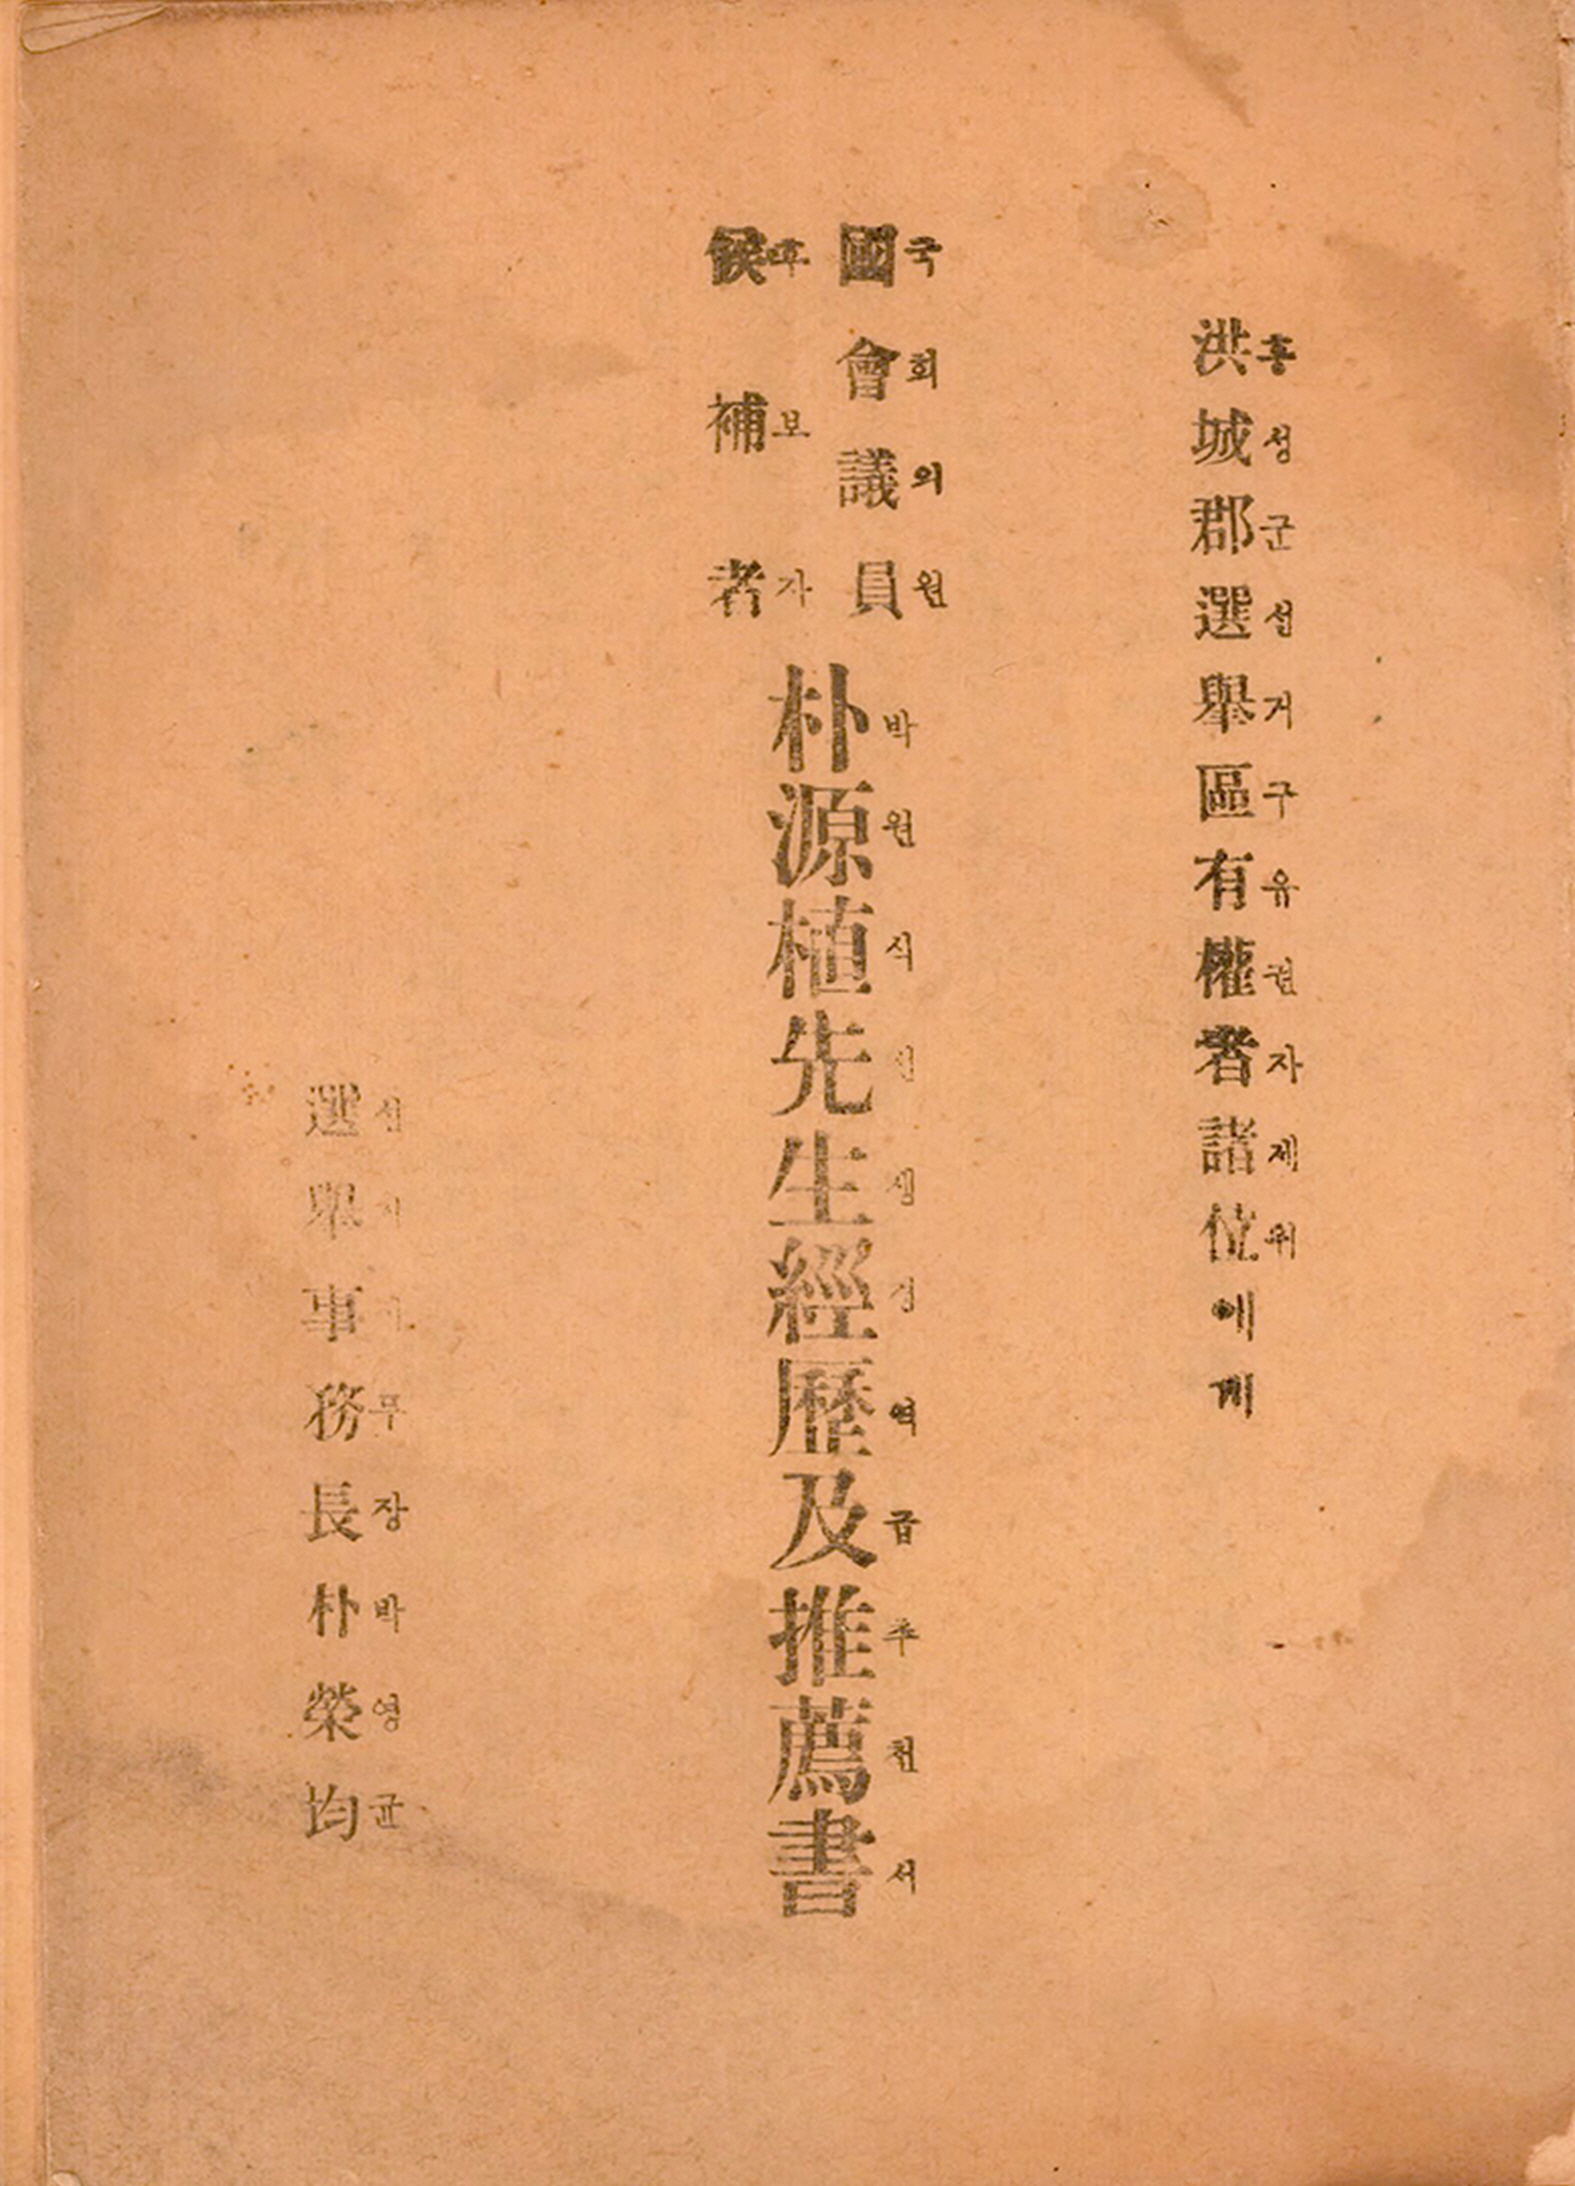 洪城郡選擧區有權者諸位에게
홍성군선거구유권자제위
國會議員
국회의원
候補者
후보자
朴源植先生經歷及推薦書
박원식선생경역급추천서
選擧事務長朴榮均
선거사무장박영균